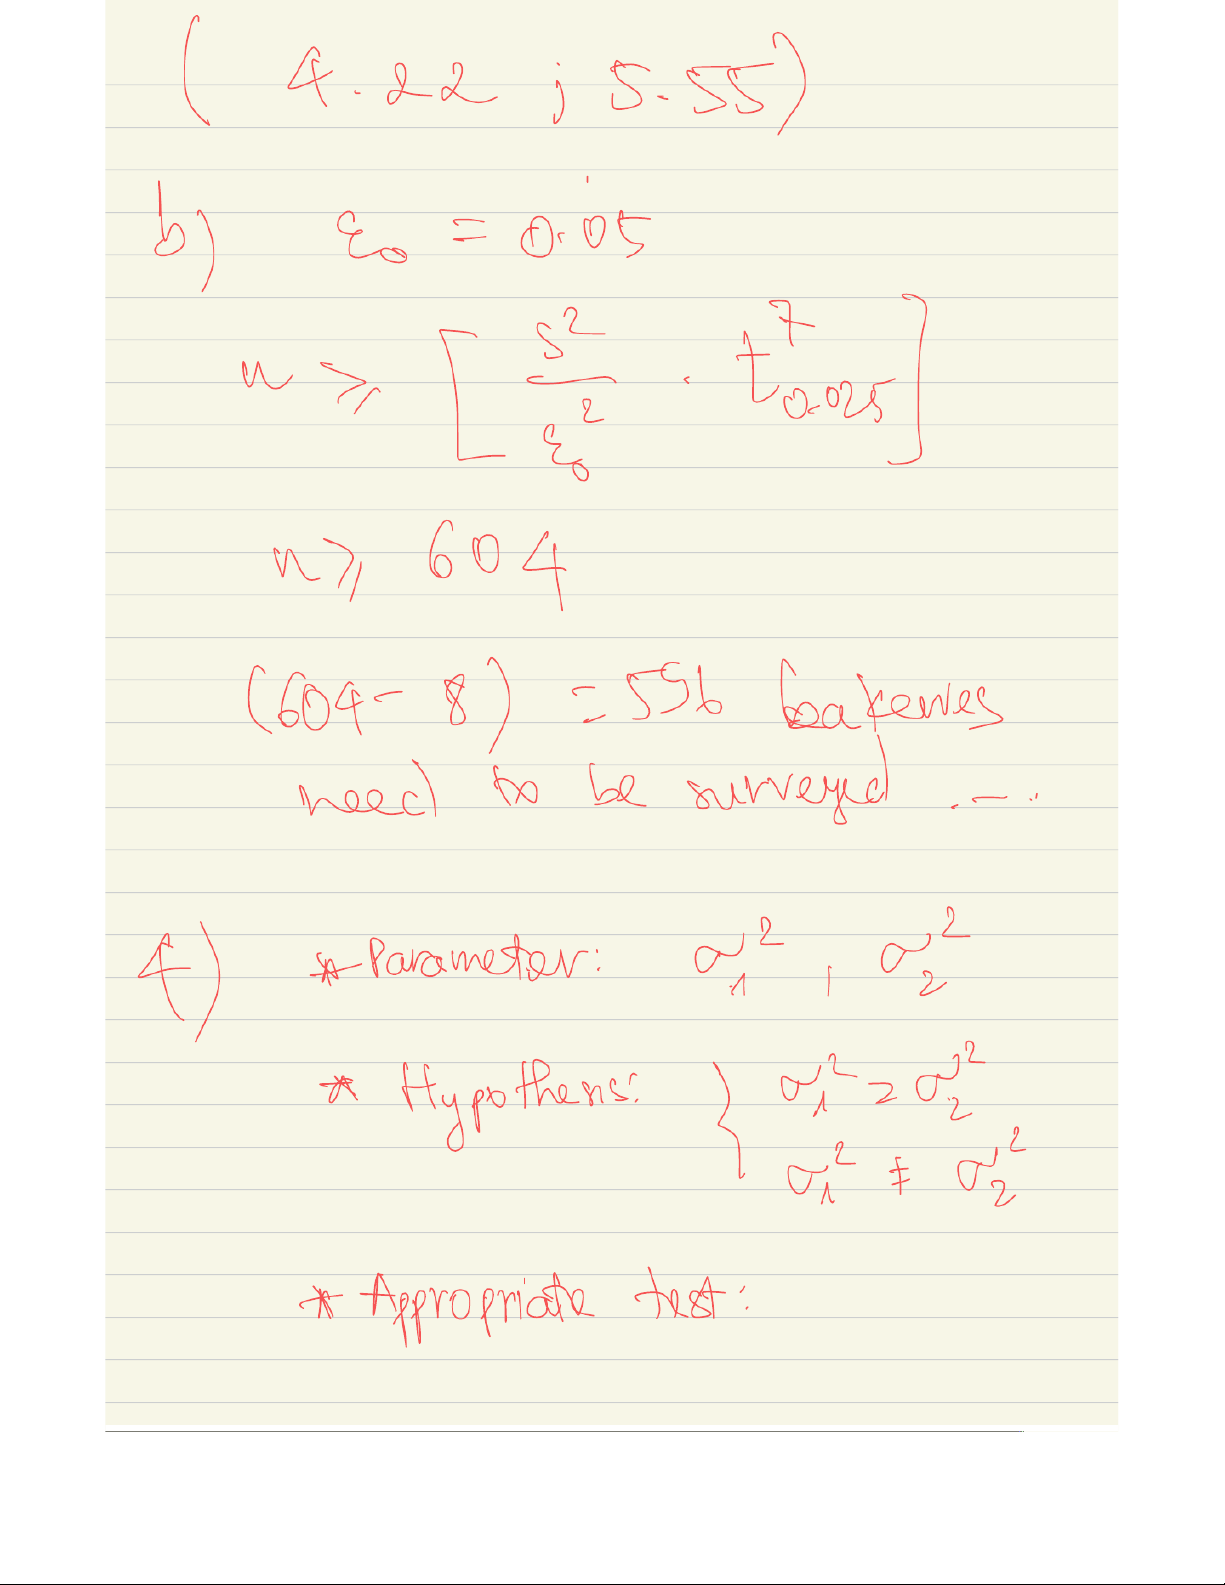 ( 4.22 ; 5.55)
b) ε₀ = 0.05
n ⩾ [ s²/ε₀² · t⁷₀.₀₂₅ ]
n ⩾ 604
(604 - 8) = 596 bakeries
need to be surveyed ....
4) * Parameter: σ₁² , σ₂²
* Hypothesis: { σ₁² = σ₂²
σ₁² ≠ σ₂²
* Appropriate test: